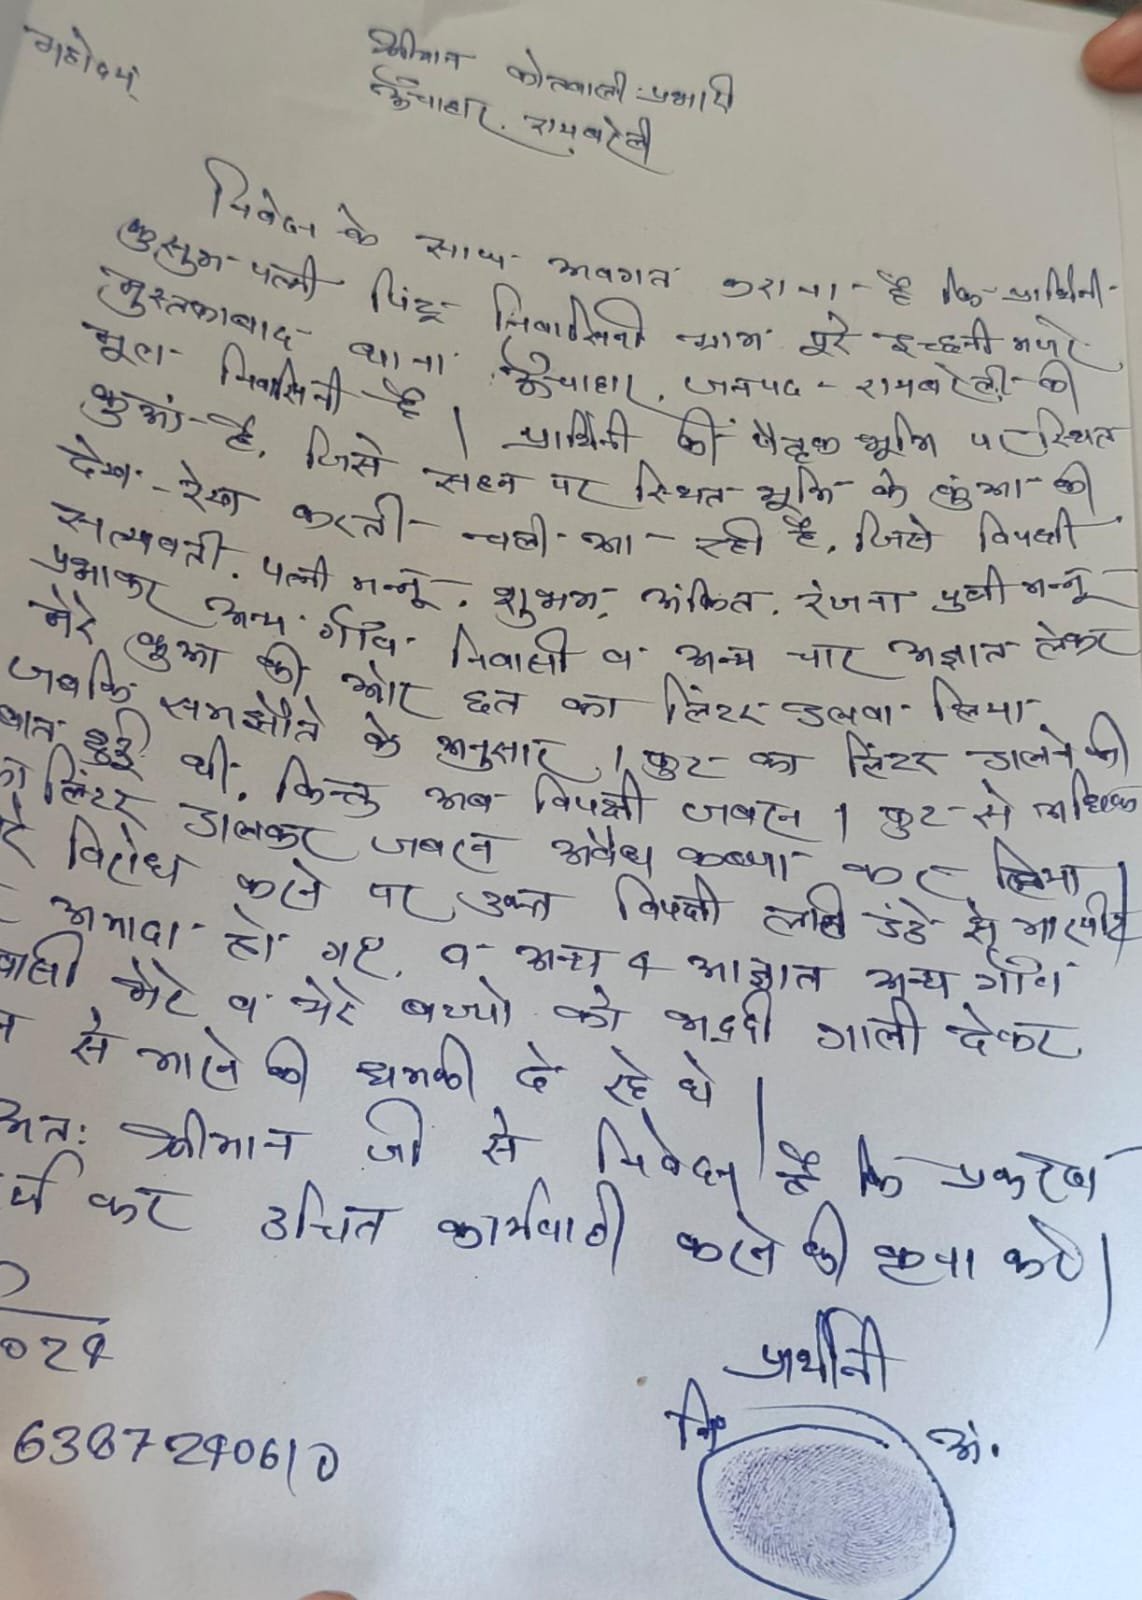 महोदय,
श्रीमान कोतवाली प्रभारी
ऊँचाहार, रायबरेली
निवेदन के साथ अवगत कराना है कि प्रार्थिनी
कुसुम पत्नी पिंटू निवासिनी ग्राम पूरे इच्छनी मजरे
मुस्तफाबाद थाना ऊँचाहार, जनपद - रायबरेली की
मूल निवासिनी है। प्रार्थिनी की पैतृक भूमि पर स्थित
कुआं है, जिसे सहन पर स्थित भूमि के कुंआ की
देख-रेख करती चली आ रही है, जिसे विपक्षी
सत्यवती, पत्नी मन्नू, शुभम, अंकित, रंजना पुत्री मन्नू
प्रभाकर अन्य गाँव निवासी व अन्य चार अज्ञात लेकर
मेरे कुआ की ओर छत का लिंटर डलवा लिया
जबकि समझौते के अनुसार 1 फुट का लिंटर डालने की
बात हुई थी, किन्तु अब विपक्षी जबरन 1 फुट से अधिक
का लिंटर डालकर जबरन अवैध कब्जा कर लिया।
विरोध करने पर उक्त विपक्षी लाठी डंडे से मारपीट
अमादा हो गए, व अन्य 4 आज्ञात अन्य गाँव
मेरे व मेरे बच्चो को भद्दी गाली देकर
से मारने की धमकी दे रहे थे।
अतः श्रीमान जी से निवेदन है कि प्रकरण
कर उचित कार्यवाही करने की कृपा करे।
024
प्रर्थीनी
नि० अं.
6387240610